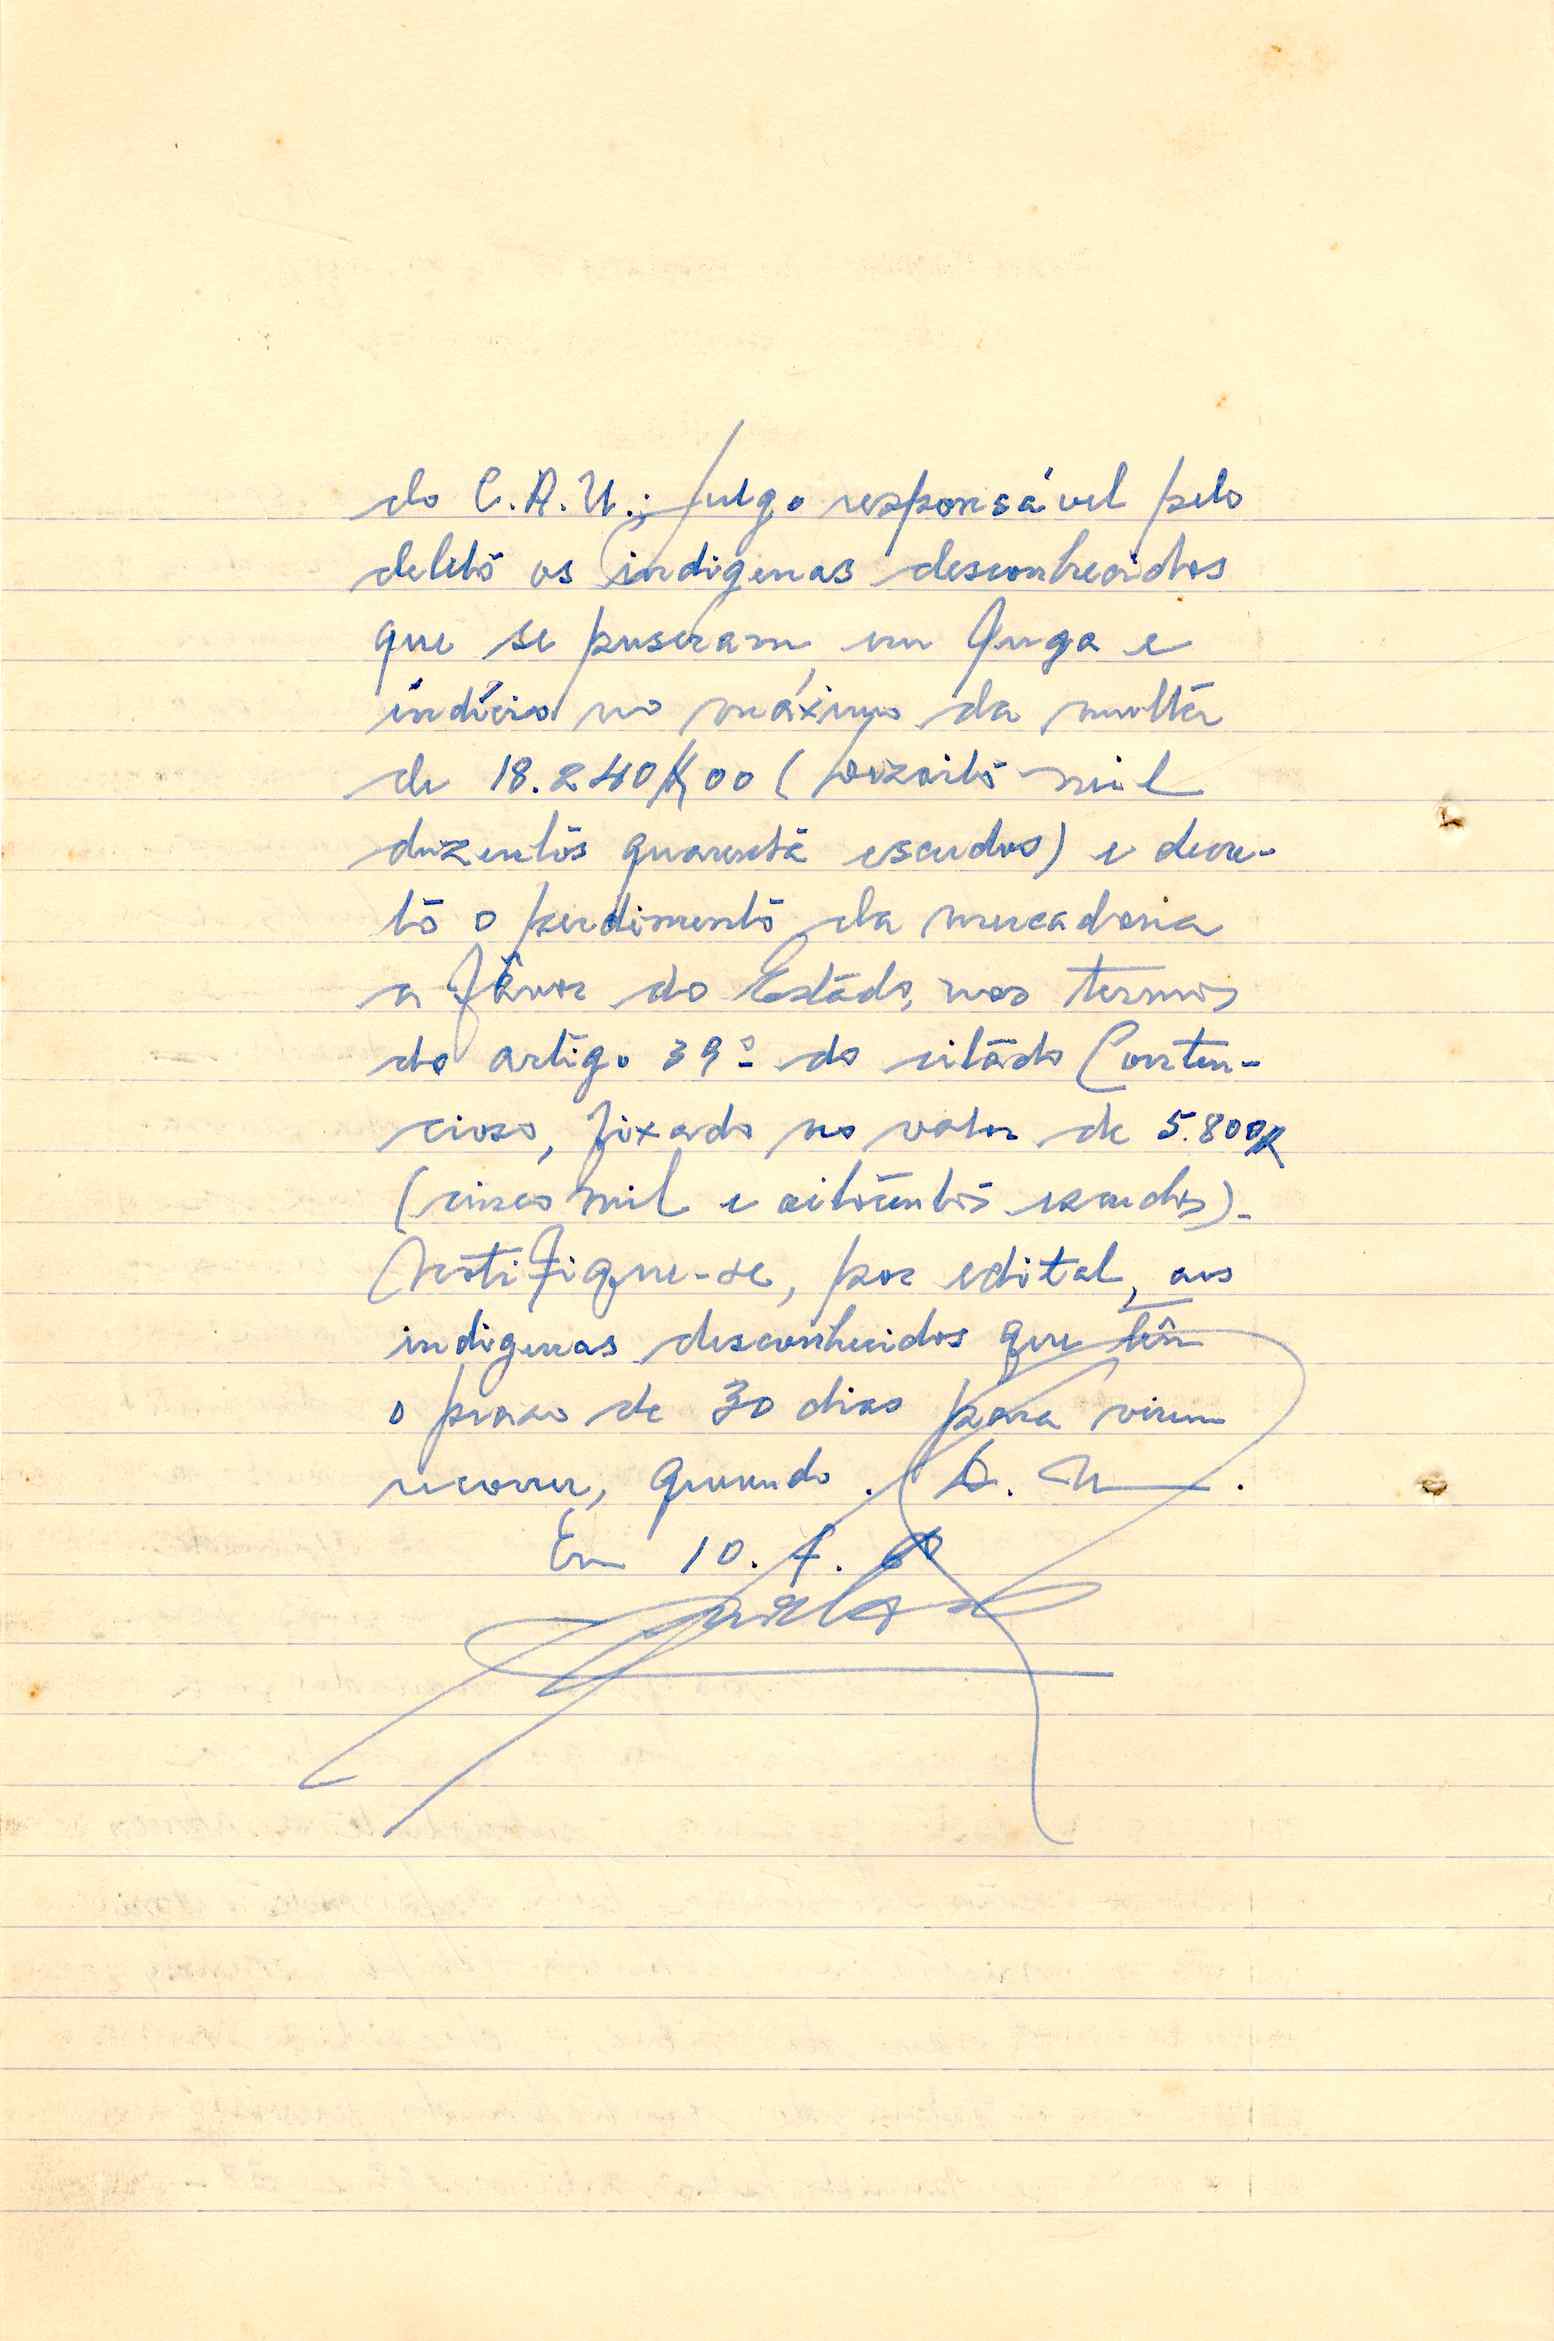 do C.A.U.; julgo responsável pelo
delito os indigenas desconhecidos
que se puseram, em fuga e
indício no máximo da multa
de 18.240$00 (dezoito mil
duzentos quarenta escudos) e decre-
to o perdimento da mercadoria
a favor do Estado, nos termos
do artigo 39º do citado Conten-
cioso, fixado no valor de 5.800$
(cinco mil e oitocentos escudos).-
Notifique-se, por edital, aos
indigenas desconhecidos que têm
o prazo de 30 dias para virem
recorrer, querendo. D. N.
Em 10. 7. 60